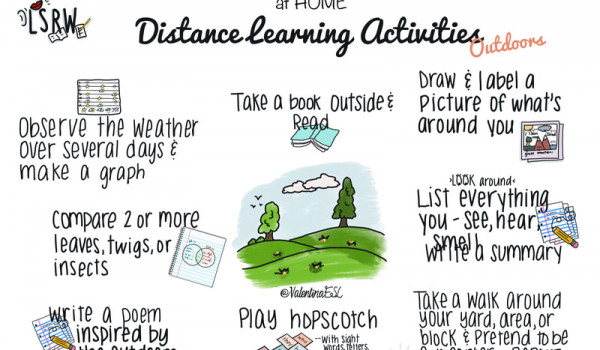 LSRW
at HOME
Distance Learning Activities
Outdoors
Observe the weather
over several days &
make a graph
Take a book outside &
Read
Draw & label a
picture of what's
around you
Compare 2 or more
leaves, twigs, or
insects
LOOK around
List everything
you - see, hear,
smell
write a summary
@ValentinaESL
Write a poem
inspired by
the outdoors
Play hopscotch
--with sight
words, letters,
Take a walk around
your yard, area, or
block & Pretend to be